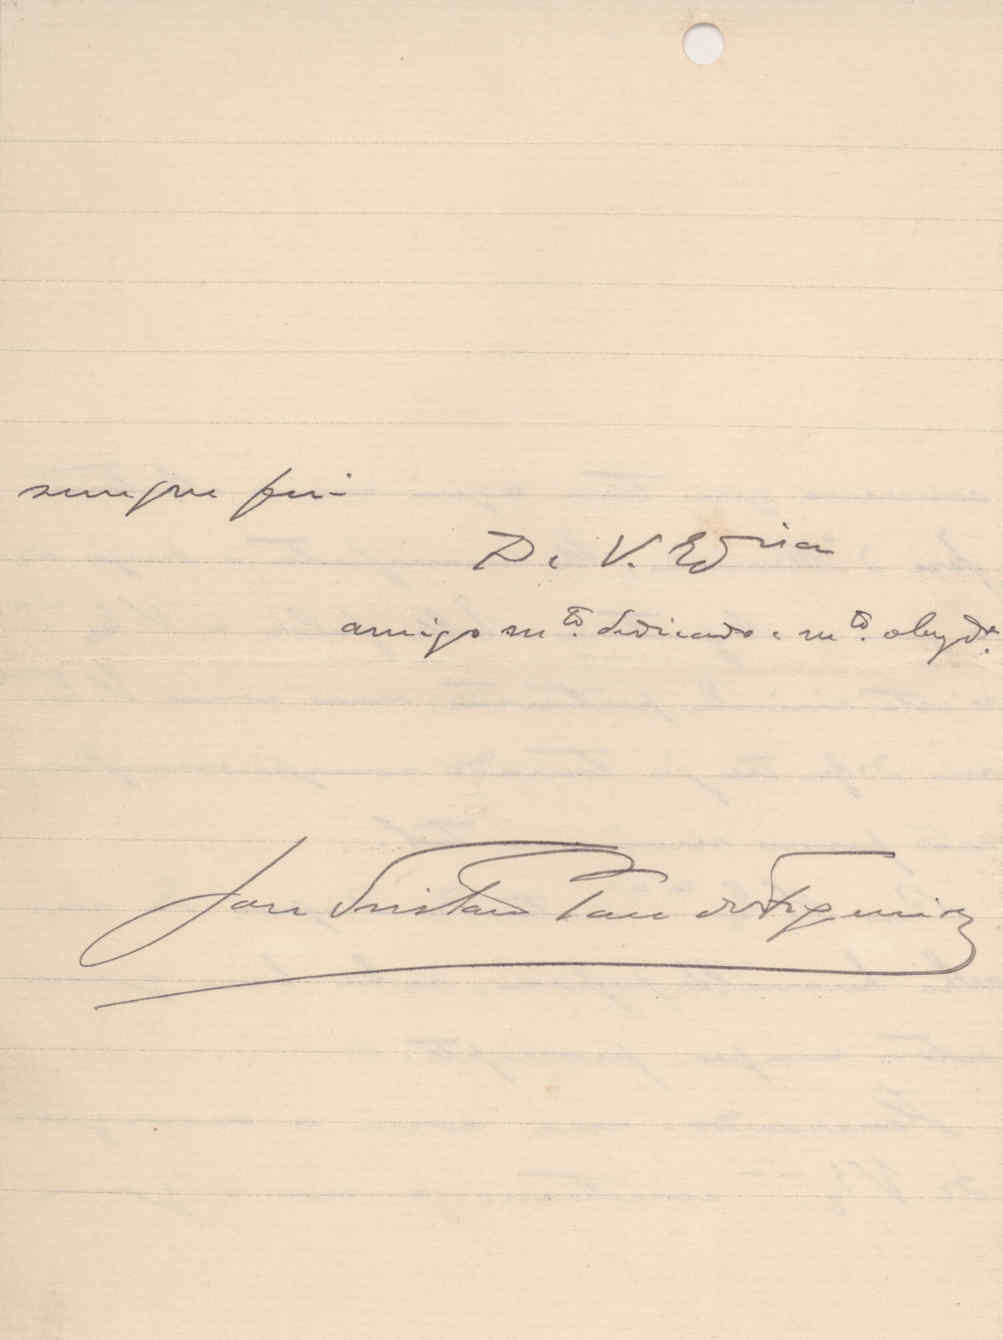 sempre fui-
De V. Ex.cia
amigo m.to dedicado e m.to obrgd.º
José Tristão Paes de Figueiredo